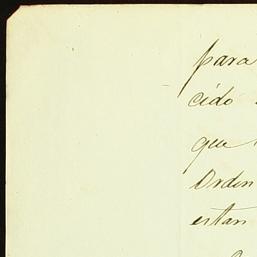 para
cido
que
Orden
estan